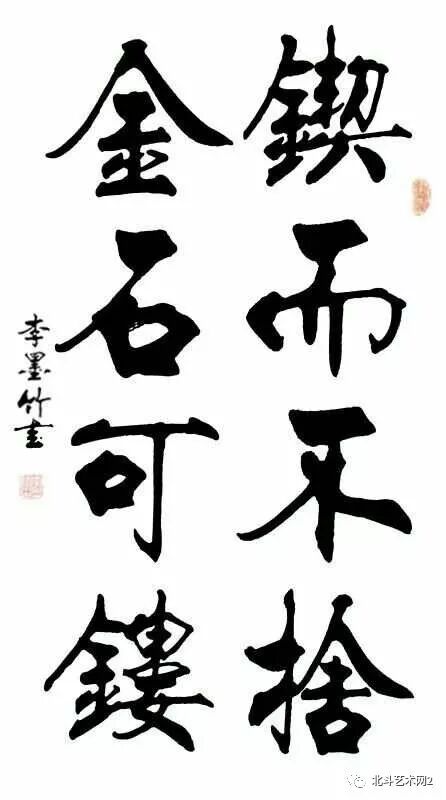 鍥而不捨
金石可鏤
李墨竹書
北斗艺术网2